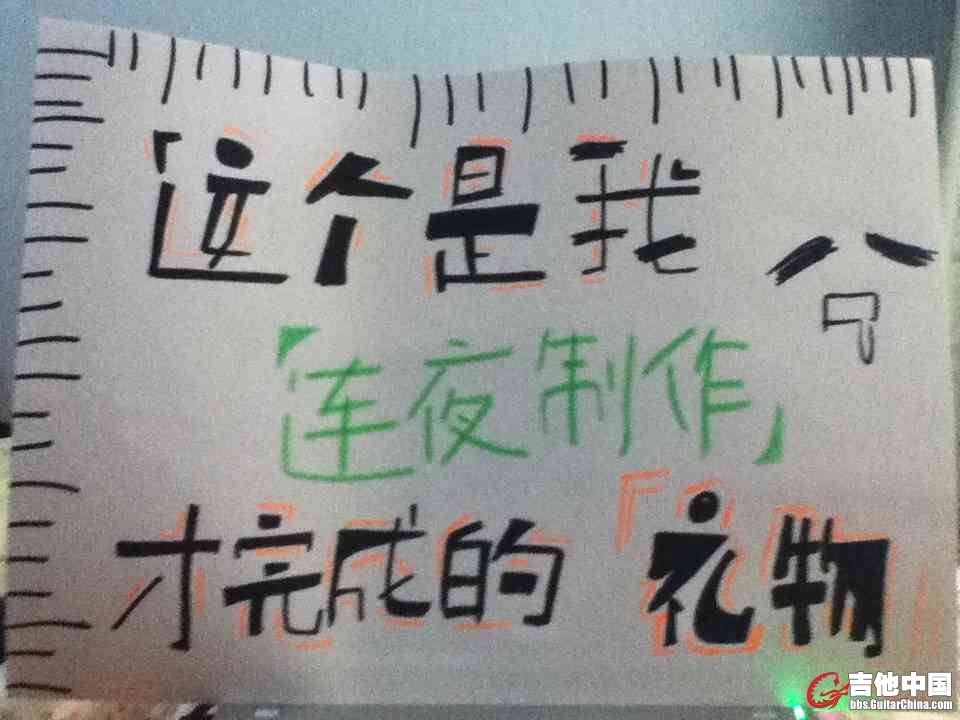 这个是我
「连夜制作」
才完成的「礼物
吉他中国
bbs.GuitarChina.com